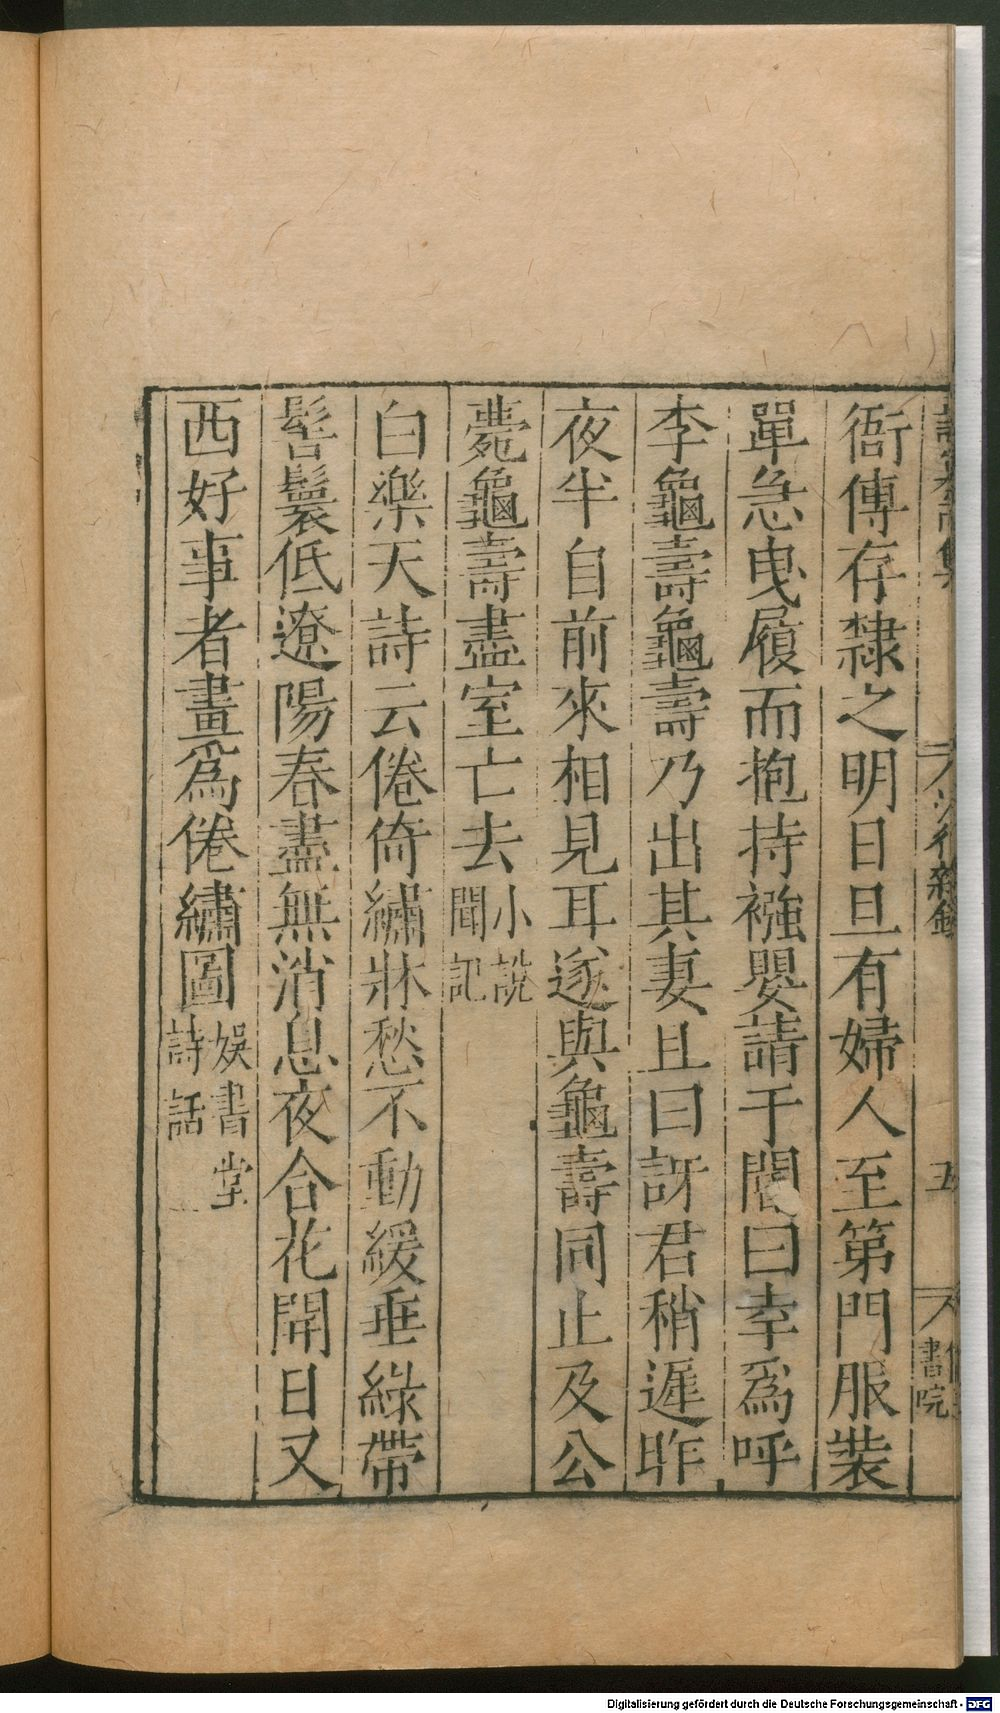 衙傳存隸之明日旦有婦人至第門服裝
單急曳履而抱持襁嬰請于閽曰幸爲呼
李龜壽龜壽乃出其妻且曰訝君稍遲昨
夜半自前來相見耳遂與龜壽同止及公
薨龜壽盡室亡去小說
聞記
白樂天詩云倦倚繡牀愁不動緩垂綠帶
髻鬟低遼陽春盡無消息夜合花開日又
西好事者畫爲倦繡圖娛書堂
詩話
五
書院
Digitalisierung gefördert durch die Deutsche Forschungsgemeinschaft - DFG